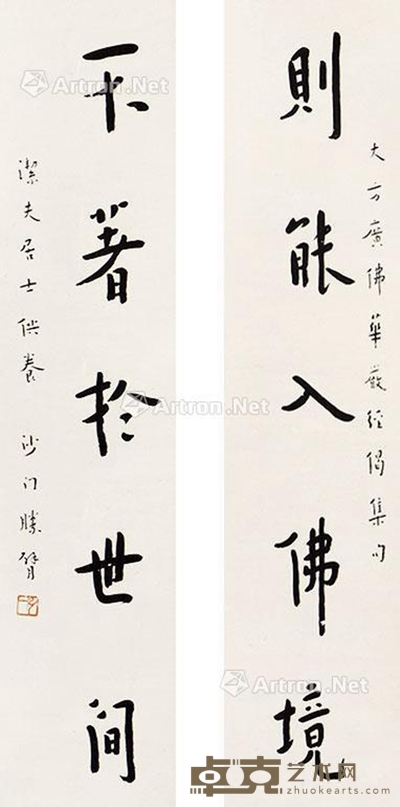 大方廣佛華嚴經偈集句
則能入佛境
不著於世間
潔夫居士供養 沙门勝臂
Artron.Net
Artron.Net
Artron.Net
Artron.Net
Artron.Net
卓克艺术网
zhuokearts.com